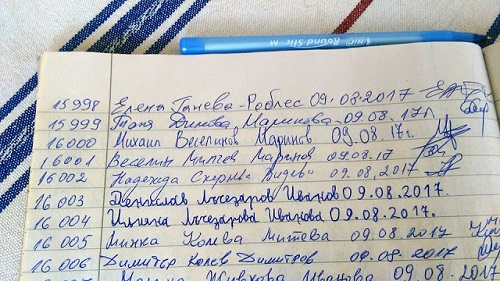 BIC Round Stic M
15998 Елена Ганева-Роблес 09.08.2017
15999 Таня Динова Маринова 09.08.17г.
16000 Михаил Веселинов Маринов 09.08.17г.
16001 Веселин Милчев Маринов 09.08.17
16002 Надежда 09.08.2017
16003 Денислав Лъчезаров Иванов 09.08.2017.
16004 Илияна Лъчезарова Иванова 09.08.2017.
16005 Минка Колева Митева 09.08.2017
16006 Димитър Колев Димитров 09.08.2017
Живкова Иванова 09.08.2017